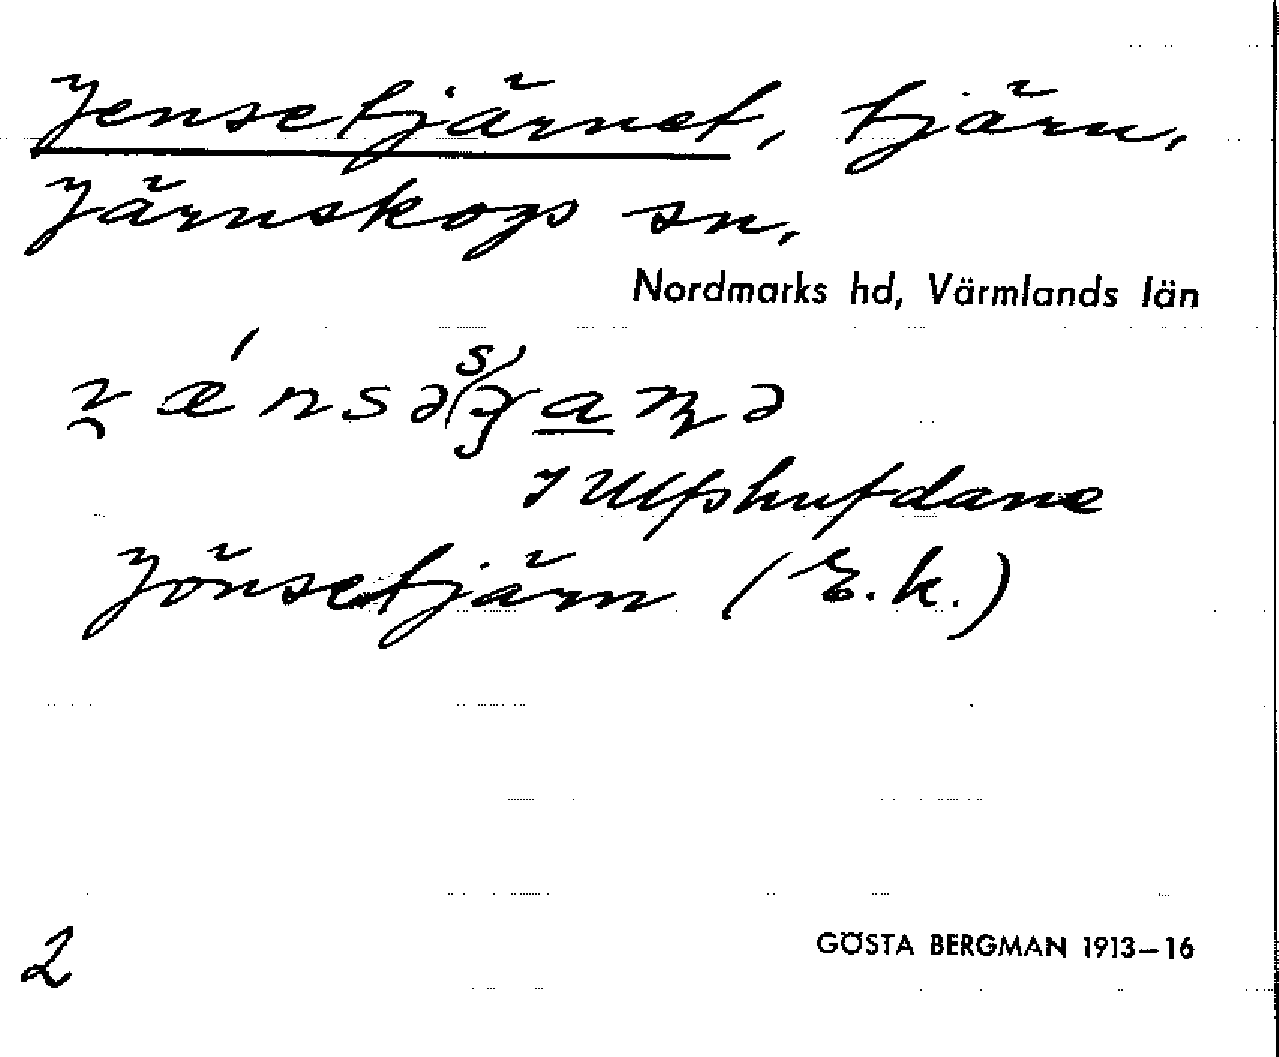 Jensetjärnet, tjärn,
Järnskogs sn,
Nordmarks hd, Värmlands län
Jönsetjärn (E.k.)
2
GÖSTA BERGMAN 1913–16